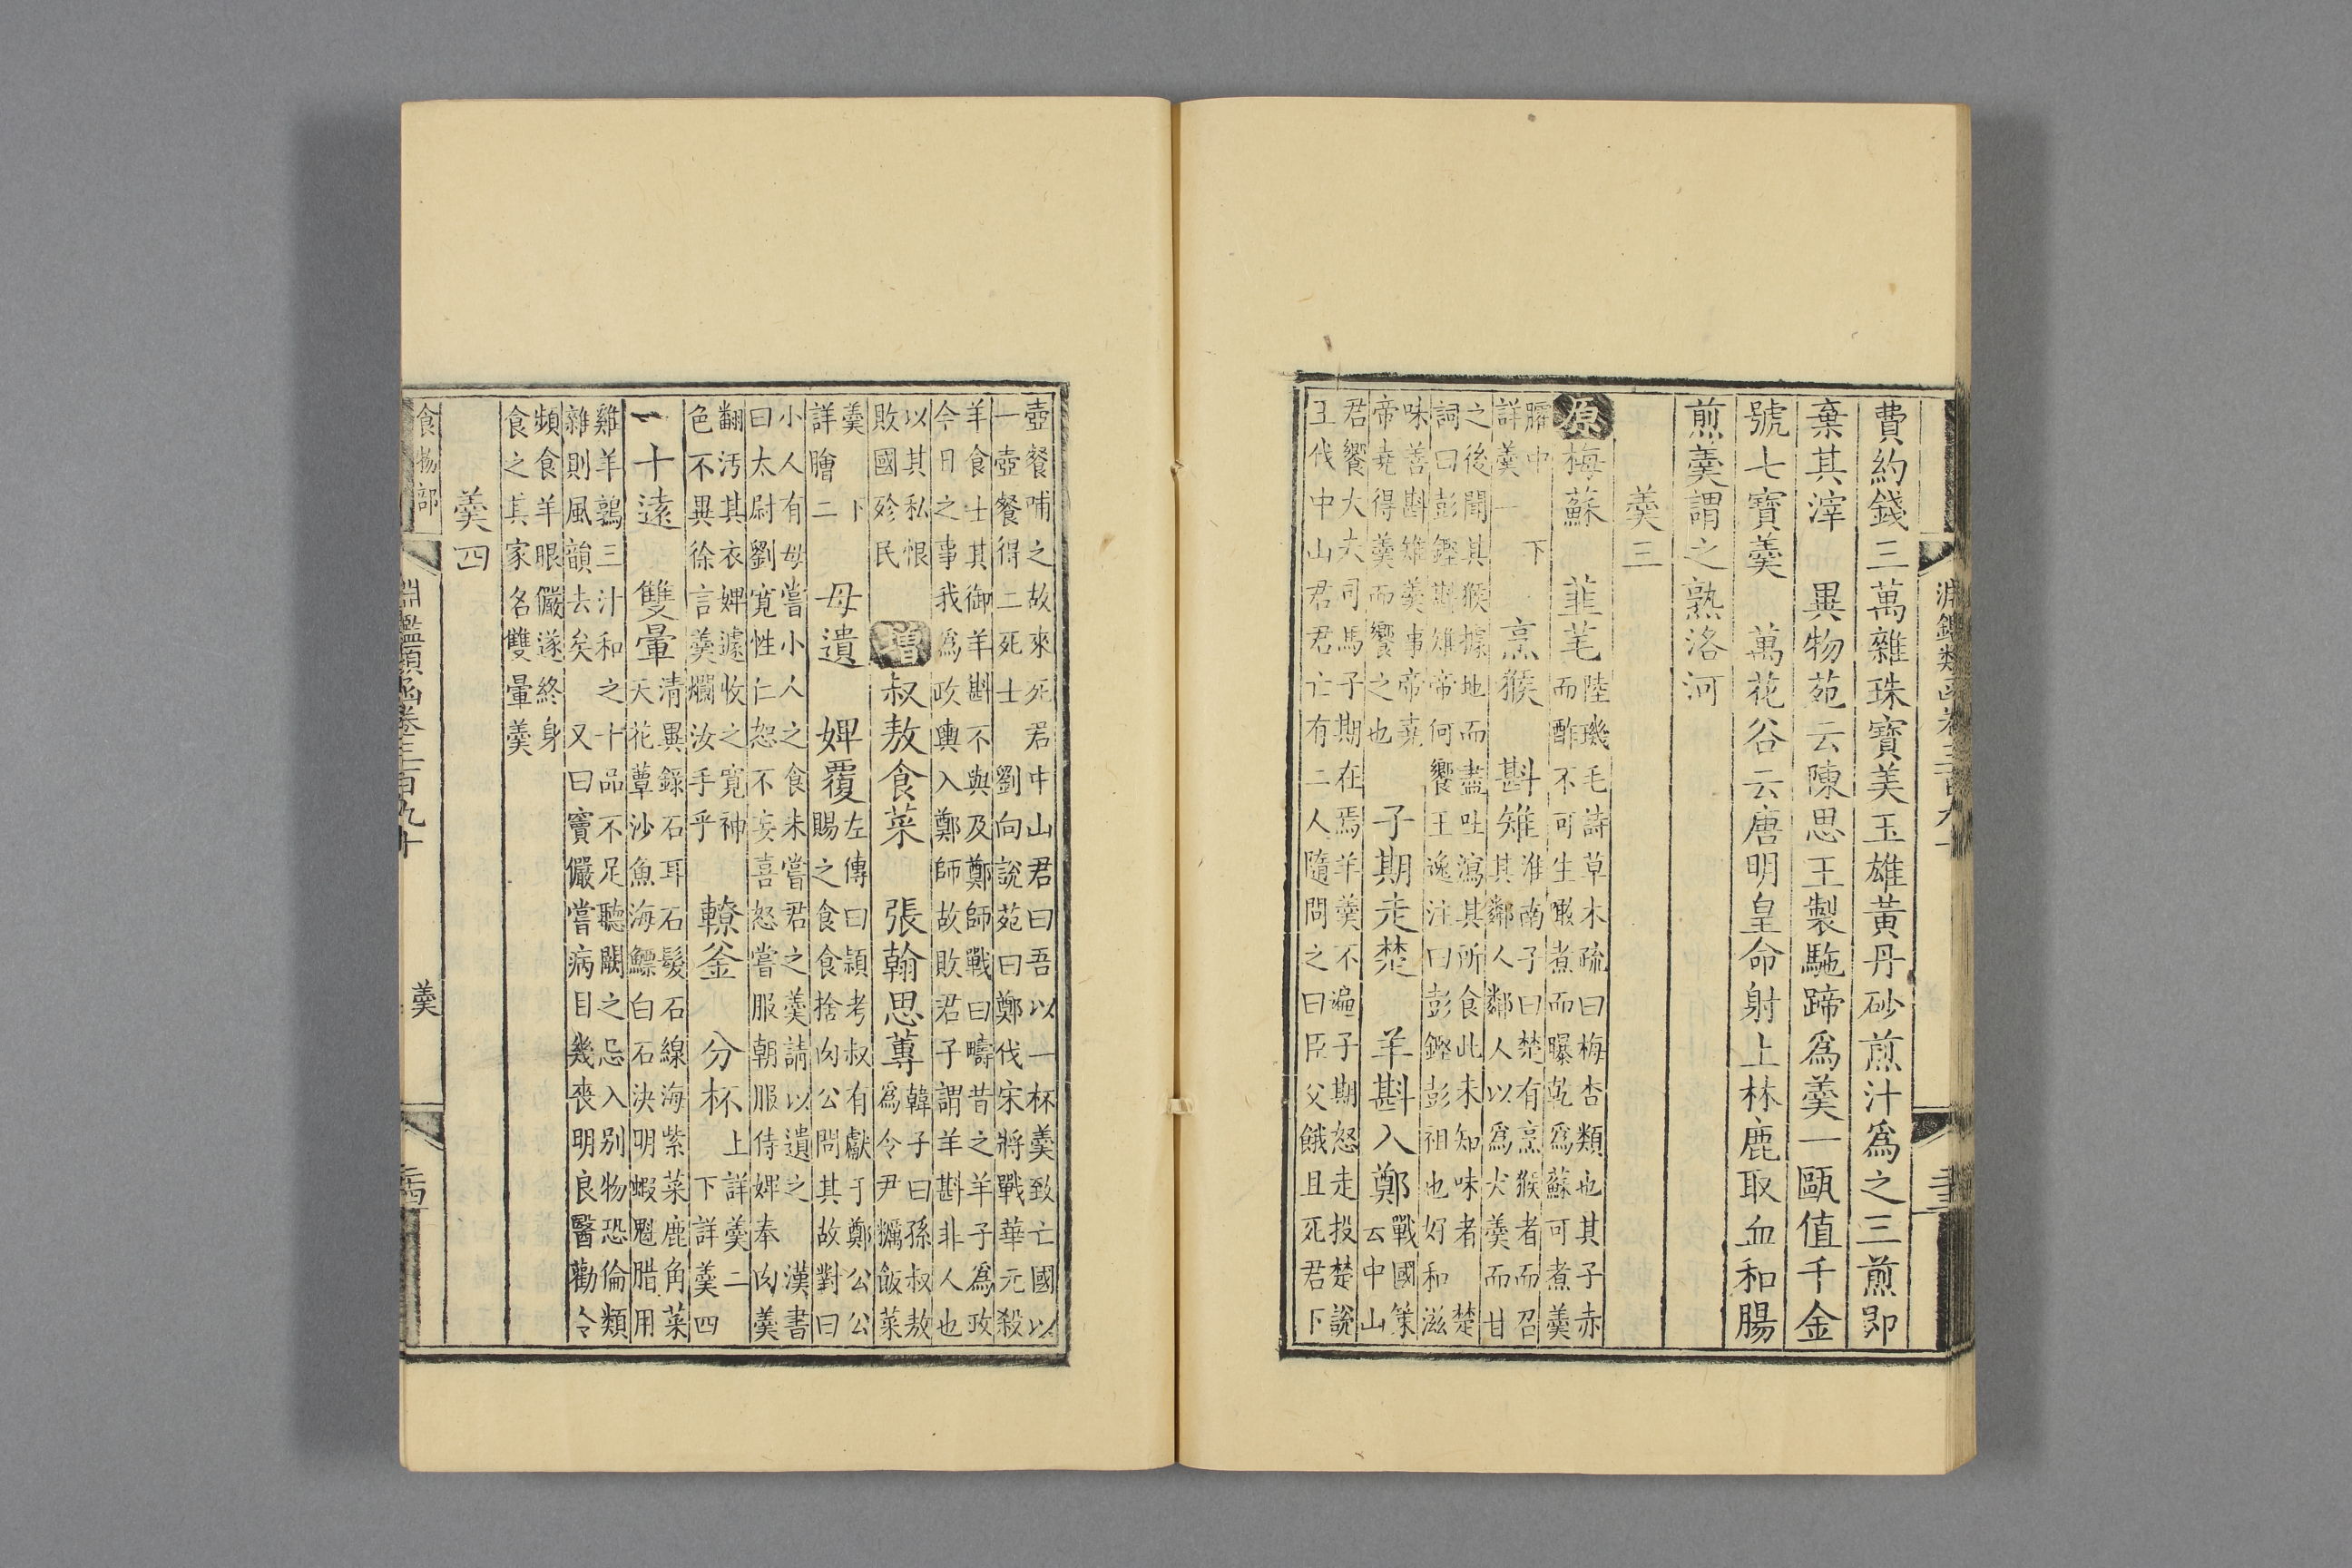 費約錢三萬雜珠寶美玉雄黃丹砂煎汁爲之三煎即
棄其滓　異物苑云陳思王製駞蹄爲羹一甌值千金
號七寶羹　萬花谷云唐明皇命射上林鹿取血和腸
煎羹謂之熟洛河
羹三
原梅蘇　韮芼陸璣毛詩草木疏曰梅杏類也其子赤
而酢不可生噉煮而曝乾爲蘇可煮羹
臛中
詳羹一下　烹猴　斟雉淮南子曰楚有烹猴者而召
其鄰人鄰人以爲犬羹而甘
之後聞其猴據地而盡吐瀉其所食此未知味者　楚
詞曰彭鏗斟雉帝何饗王逸注曰彭鏗彭祖也好和滋
味善斟雉羹事帝堯
帝堯得羹而饗之也　子期走楚　羊斟入鄭戰國策
云中山
君饗大夫司馬子期在焉羊羹不遍子期怒走投楚說
王伐中山君君亡有二人隨問之曰臣父餓且死君下
壺餐哺之故來死君中山君曰吾以一杯羹致亡國以
一壺餐得二死士　劉向說苑曰鄭伐宋將戰華元殺
羊食士其御羊斟不與及鄭師戰曰疇昔之羊子爲政
今日之事我爲政輿入鄭師故敗君子謂羊斟非人也
以其私恨
敗國殄民　增叔敖食菜　張翰思蓴韓子曰孫叔敖
爲令尹糲飯菜
羹　下
詳膾二　母遺　婢覆左傳曰潁考叔有獻于鄭公公
賜之食食捨肉公問其故對曰
小人有母嘗小人之食未嘗君之羹請以遺之　漢書
曰太尉劉寛性仁恕不妄喜怒嘗服朝服侍婢奉肉羹
翻汚其衣婢遽收之寛神
色不異徐言羹爛汝手乎　轑釜　分杯上詳羹二
下詳羹四
一十遠　雙暈清異錄石耳石髮石線海紫菜鹿角菜
天花蕈沙魚海鰾白石決明蝦魁腊用
雞羊鶉三汁和之十品不足聽闕之忌入别物恐倫類
雜則風韻去矣　又曰竇儼嘗病目幾喪明良醫勸令
頻食羊眼儼遂終身
食之其家名雙暈羹
羹四
食物部
淵鑑類函卷三百九十
羹